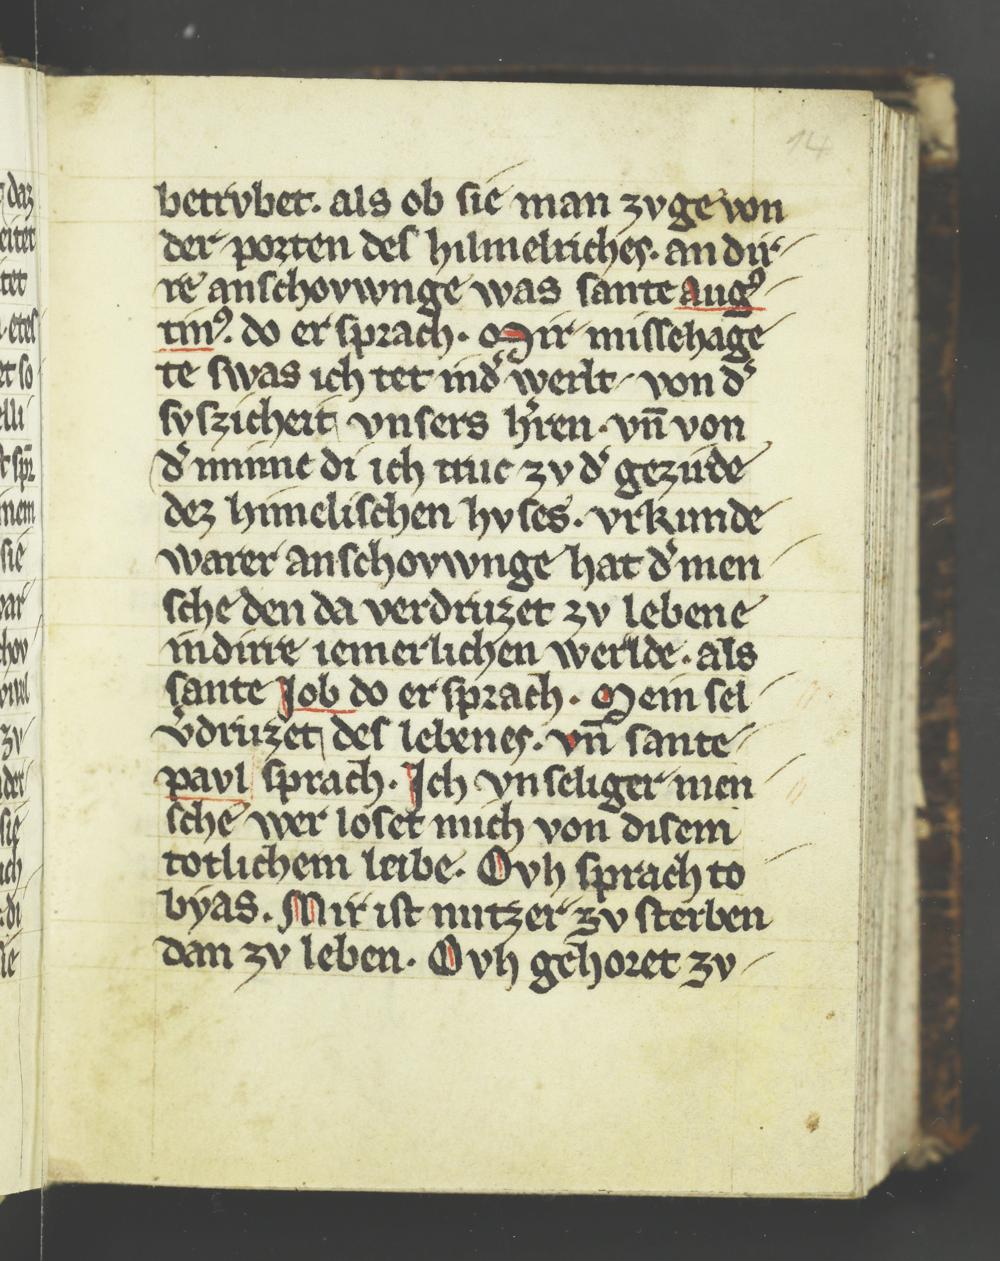 14
betrvbet. als ob sie man zvge von
der porten des himelriches. an dir
re anschovwnge was sante Aug⁹
tin⁹. do er sprach. Mir missehage
te swas ich tet in d͛ werlt von d͛
svszicheit vnsers h͛ren. vn̄ von
d͛ minne di ich truc zv d͛ gezirde
dez himelischen hvses. vrkunde
warer anschovwnge hat d͛ men
sche den da verdruzet zv lebene
in dirre iemerlichen werlde. als
sante Job do er sprach. Mein sel
v͛druzet des lebenes. vn̄ sante
pavl sprach. Ich vnseliger men
sche wer loset mich von disem
totlichem leibe. Ovh sprach to
byas. Mir ist nutzer zv sterben
dan zv leben. Ovh gehoret zv